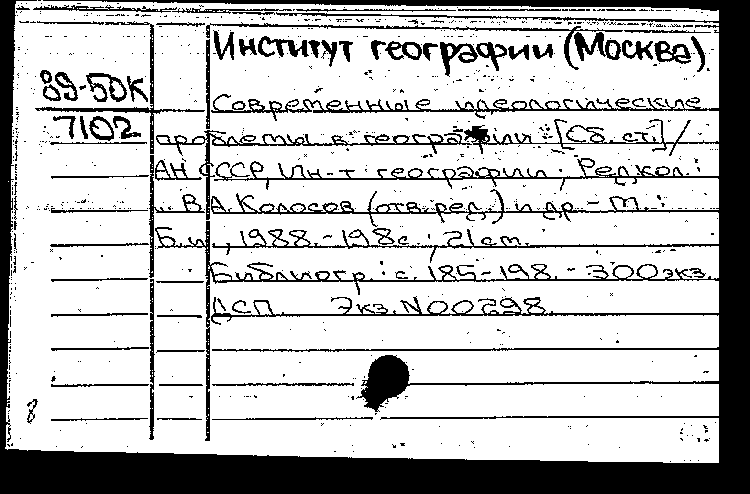 Институт географии (Москва)
89-50К
7102
Современные идеологические
проблемы в географии : [Сб. ст.] /
АН СССР, Ин-т географии ; Редкол.:
.. В.А. Колосов (отв. ред.) и др. - М. :
Б.и., 1988. - 198с ; 21см.
Библиогр.: с. 185-198. - 300экз.
ДСП. Экз. N00298.
8